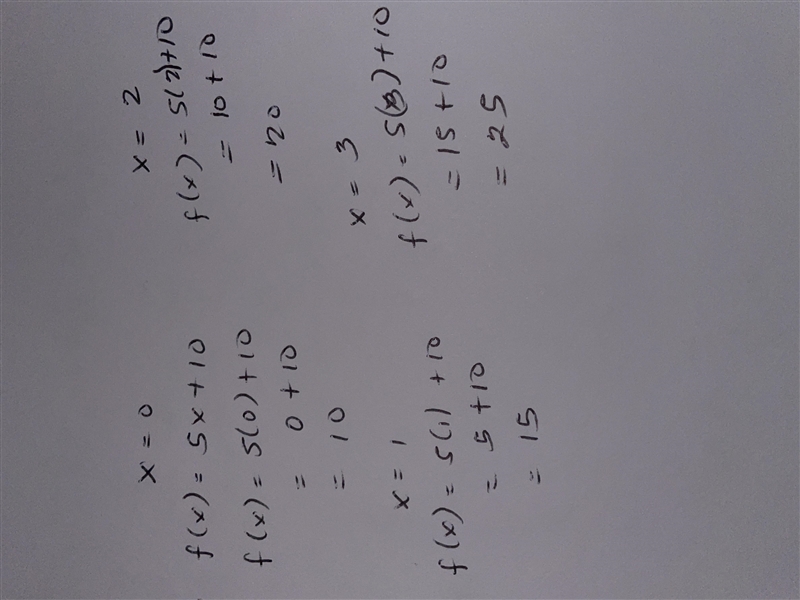 x = 0
f(x) = 5x + 10
f(x) = 5(0) + 10
= 0 + 10
= 10
x = 1
f(x) = 5(1) + 10
= 5 + 10
= 15
x = 2
f(x) = 5(2) + 10
= 10 + 10
= 20
x = 3
f(x) = 5(3) + 10
= 15 + 10
= 25